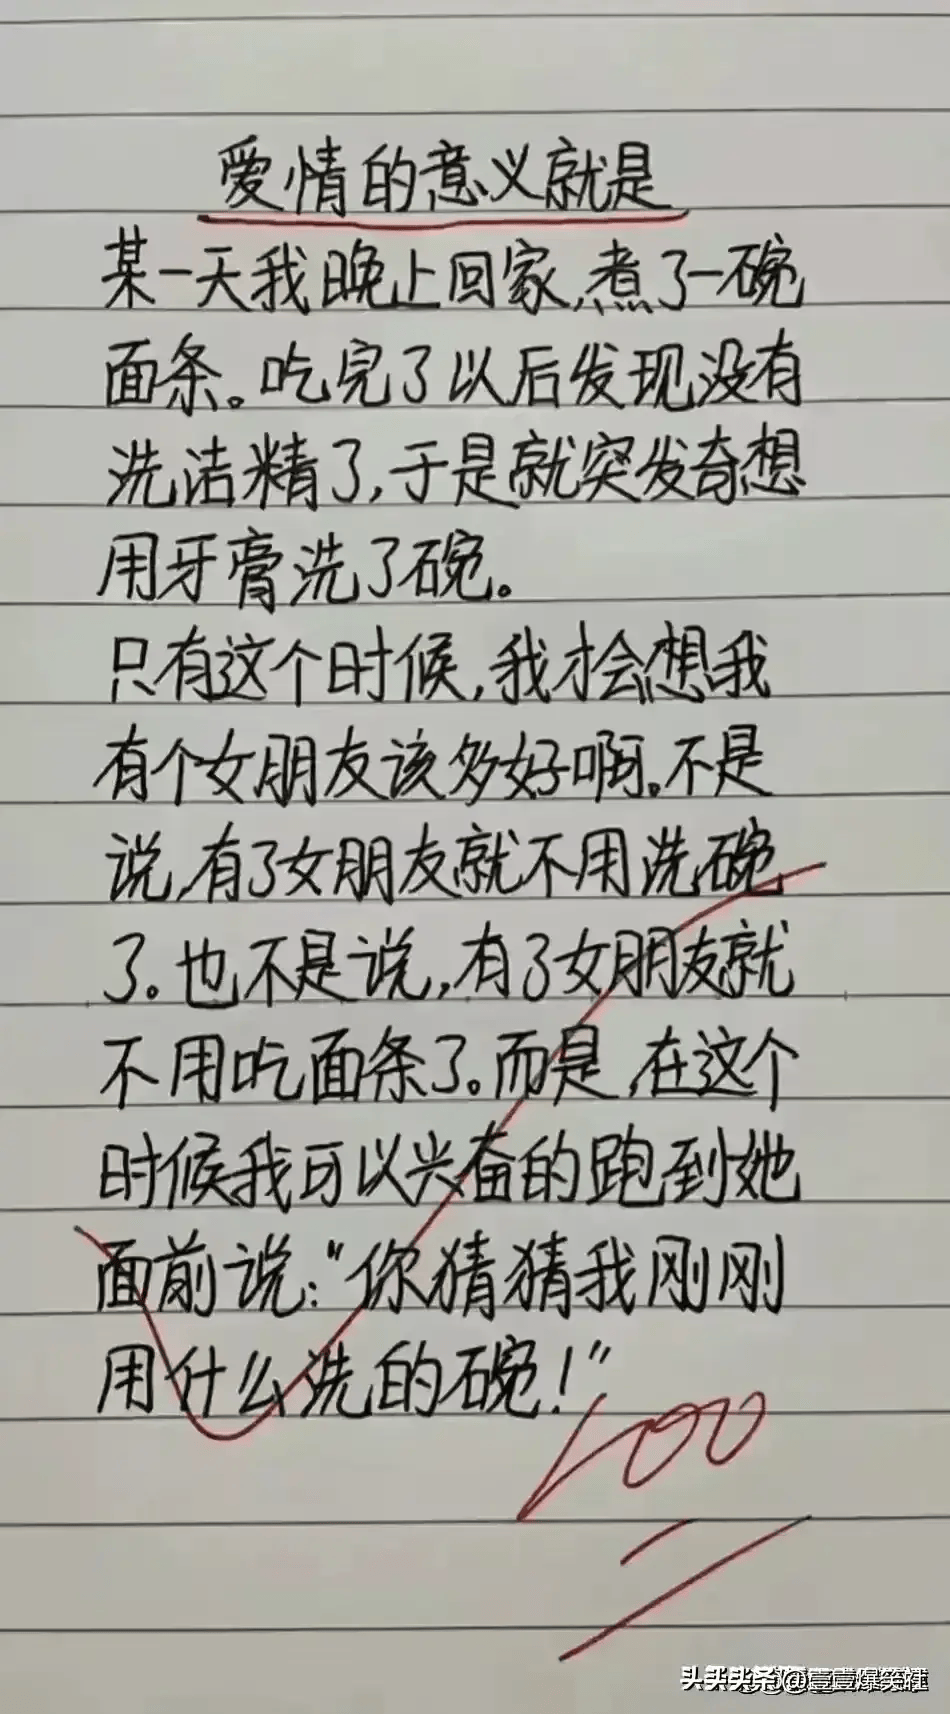 爱情的意义就是
某一天我晚上回家,煮了一碗
面条。吃完了以后发现没有
洗洁精了,于是就突发奇想
用牙膏洗了碗。
只有这个时候,我才会想我
有个女朋友该多好啊。不是
说,有了女朋友就不用洗碗
了。也不是说,有了女朋友就
不用吃面条了。而是,在这个
时候我可以兴奋的跑到她
面前说:“你猜猜我刚刚
用什么洗的碗!”
100
头条 @壹壹爆笑